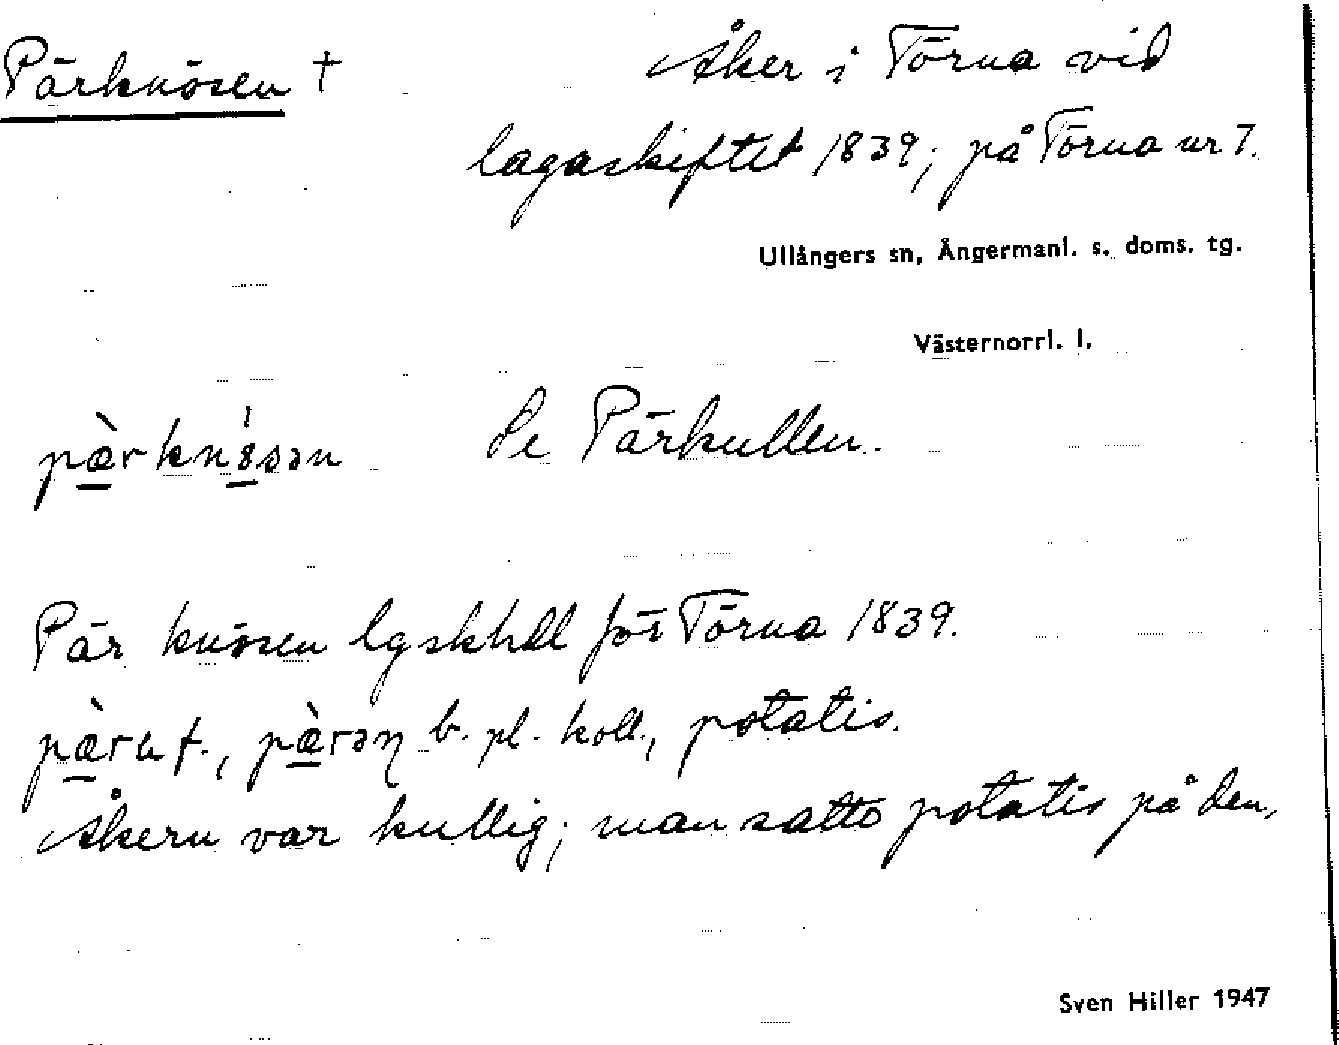 Pärknösen † Åker i Törna vid
lagaskiftet 1839; på Törna nr 7.
Ullångers sn, Ångermanl. s. doms. tg.
Västernorrl. l.
pæ̀rkn8́sən Se Pärkullen.
Pär knösen lgskhdl för Törna 1839.
pæ̀ru f., pæ̀rəη b. pl. koll., potatis.
Åkern var kullig; man satte potatis på den,
Sven Hiller 1947